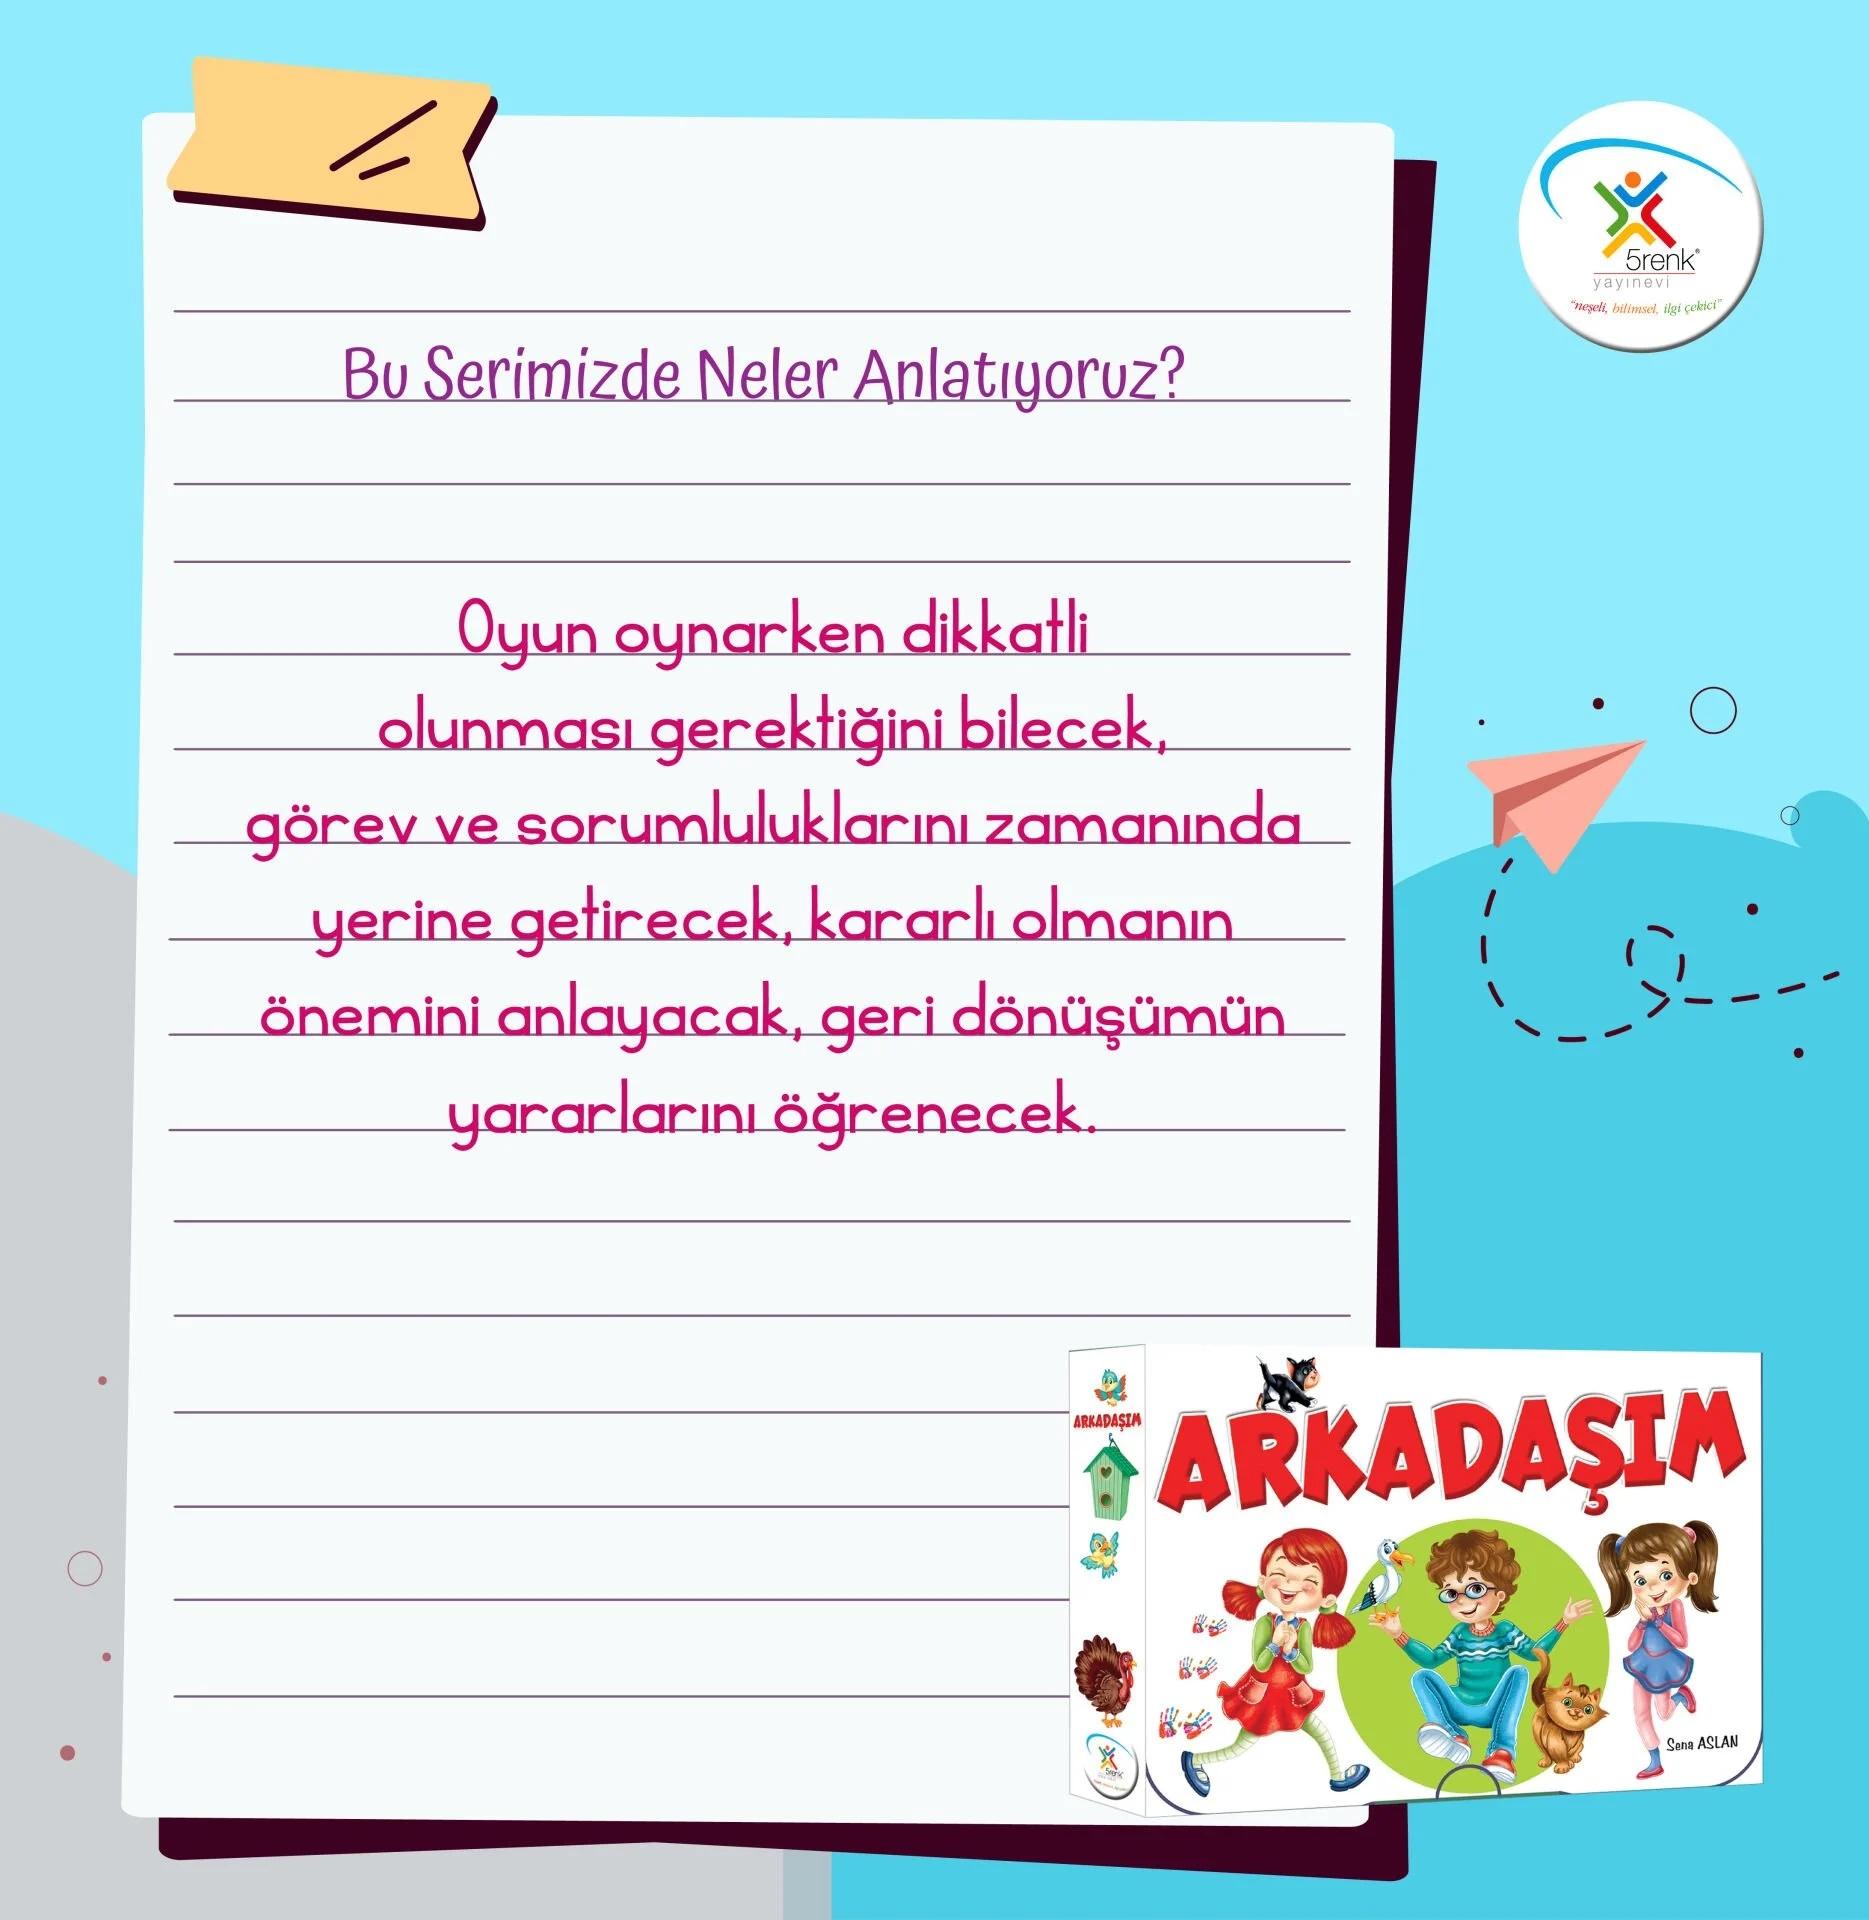 5renk®
yayınevi
"neşeli, bilimsel, ilgi çekici"
Bu Serimizde Neler Anlatıyoruz?
Oyun oynarken dikkatli
olunması gerektiğini bilecek,
görev ve sorumluluklarını zamanında
yerine getirecek, kararlı olmanın
önemini anlayacak, geri dönüşümün
yararlarını öğrenecek.
ARKADAŞIM
5renk
ARKADAŞIM
Sena ASLAN